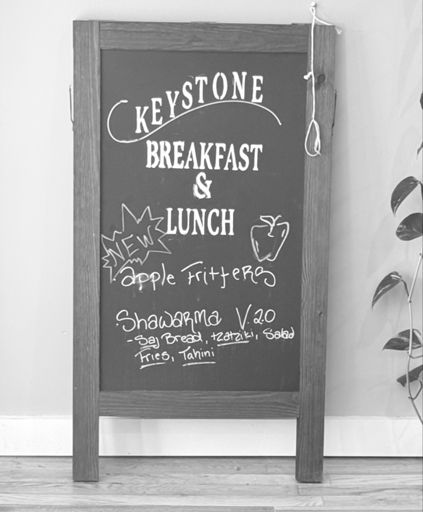 KEYSTONE
BREAKFAST
&
LUNCH
NEW
·apple Fritters
·Shawarma V.2.0
-Saj Bread, tzatziki, Salad
Fries, Tahini